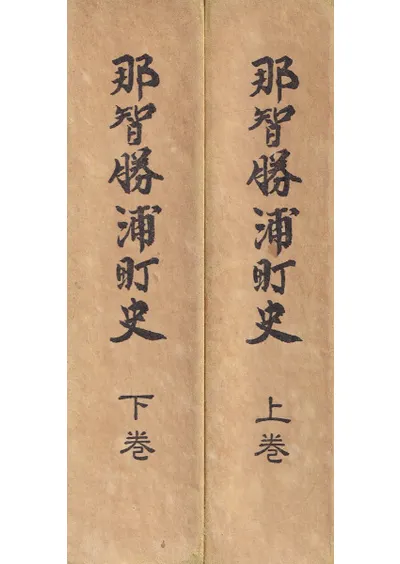 那智勝浦町史 上巻
那智勝浦町史 下巻